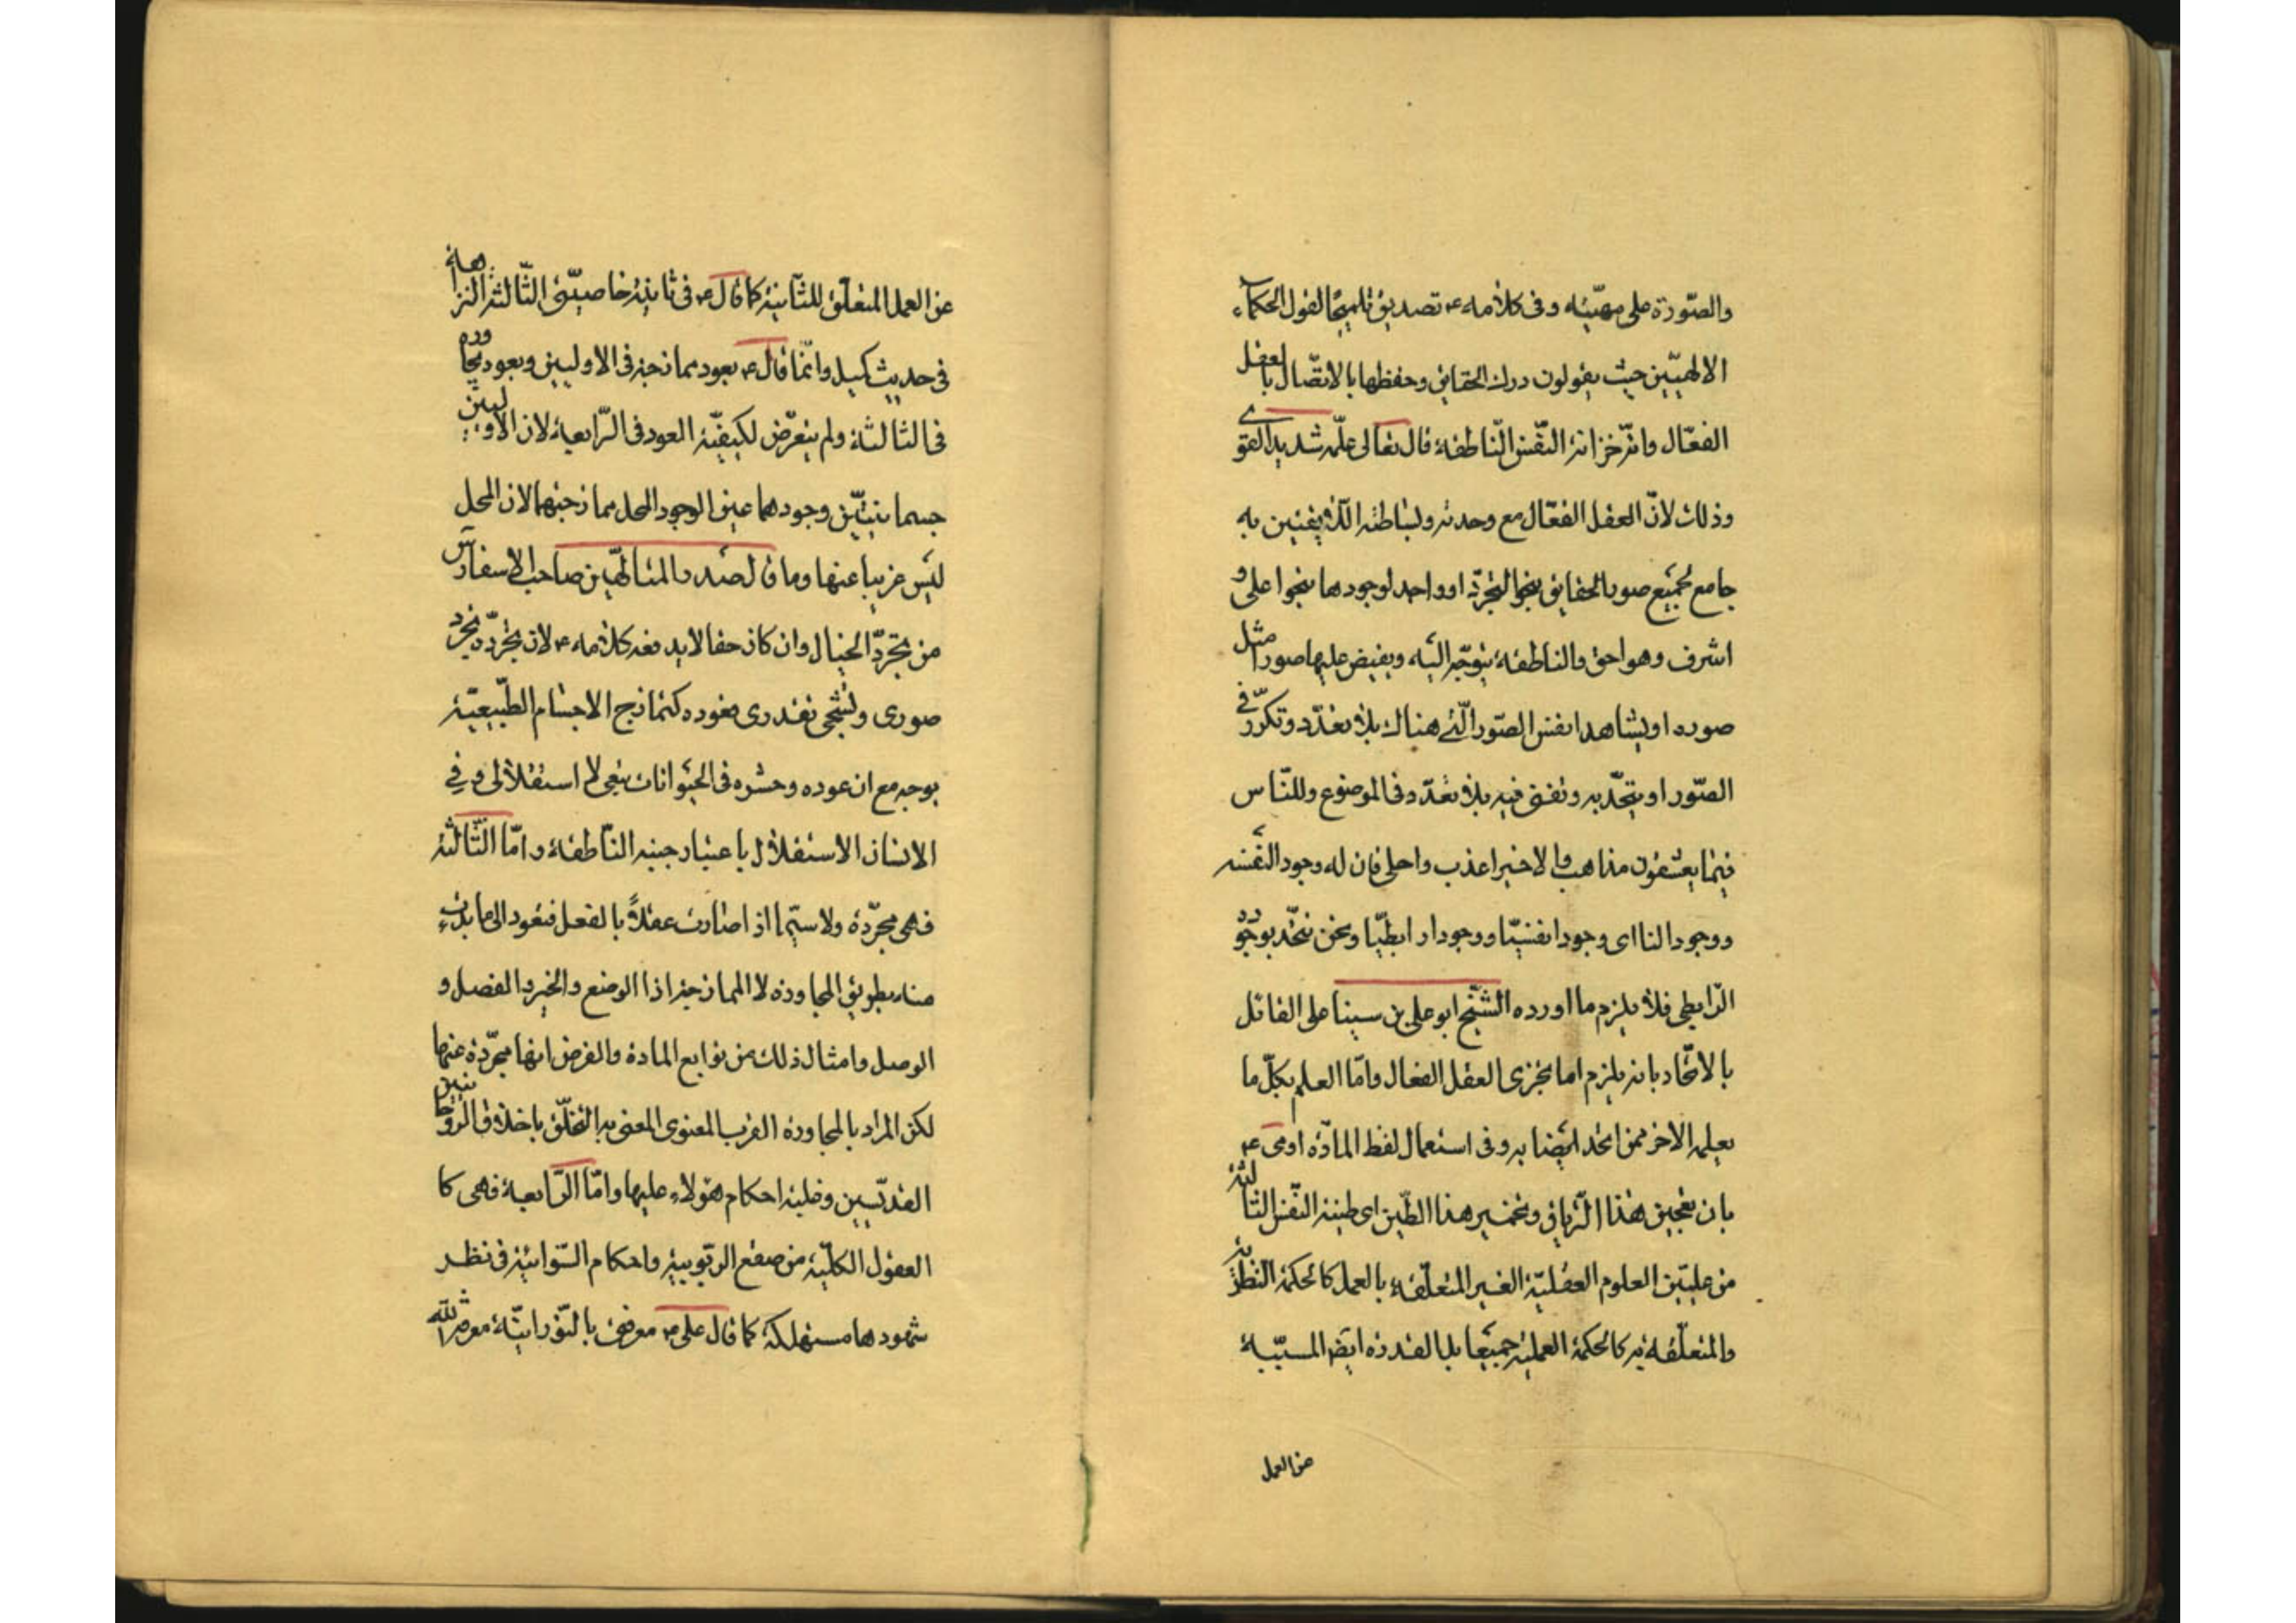 والصّورة على مهيّته وفى كلامه ع تصديق تلميحا لقول الحكماء
الالهيّين حيث يقولون درك الحقايق وحفظها بالاتّصال بالعقل
الفعّال وانّه خزانة النّفس النّاطقة قال تعالى علّمه شديد القوى
وذلك لانّ العقل الفعّال مع وحدته وبساطته اللائقتين به
جامع لجميع صور الحقايق بنحو التجرّد او واجد لوجودها بنحو اعلى و
اشرف وهو احق والناطقة يتوجّه اليه ويفيض عليها صورا مثل
صوره او يشاهد انفس الصّور الّتى هناك بلا تعدّد وتكرّر فى
الصّور او يتّحد به وتفنى فيه بلا تعدّد فى الموضوع وللنّاس
فيما يعشقون مذاهب والاخير اعذب واحلى فان له وجود النفسه
ووجود النا اى وجودا نفسيّا ووجودا رابطيّا ونحن نتّحد بوجوده
الرّابطى فلا يلزم ما اورده الشّيخ ابو على بن سينا على القائل
بالاتّحاد بانه يلزم اما تجزى العقل الفعال وامّا العلم بكلّ ما
يعلمه الاخر ممن اتحد ايضا به وفى استعمال لفظ المادّة اومى ع
بان تعجين هذا التّرياق وتخمير هذا الطّين اى طينة النّفس الثالثة
من عليّين العلوم العقليّة الغير المتعلّقة بالعمل كالحكمة النّظريّة
والمتعلّقة به كالحكمة العمليّة جميعا بل بالقدرة ايضا المسبّبة
من العمل
عن العمل المتعلّق للثّانية كما قال ع فى ثانية خاصيّتى الثّالثة النزاهة
فى حديث كميل وانّما قال ع يعود ممازجة فى الاوليين ويعود مجاورة
فى الثالثة ولم يتعرّض لكيفيّة العود فى الرّابعة لان الاوليين
جسمانيتين وجودهما عين الوجود المحل ممازجتهما لان المحل
ليس غريبا عنها وما قال صدر المتالّهين صاحب الاسفار س
من تجرّد الخيال وان كان حقا لا يدفعه كلامه ع لان تجرّده تجرّد
صورى وشبحى تقدرى فعوده كتمازج الاجسام الطّبيعيّة
بوجه مع ان عوده وحشره فى الحيوانات تبعى لا استقلالى وفى
الانسان الاستقلال باعتبار جنبه النّاطقة وامّا الثّالثة
فهى مجرّدة ولا سيّما اذا صارت عقلاً بالفعل فتعود الى ما بدئت
منه بطريق المجاورة لا الممازجة اذا الوضع والخير والفصل و
الوصل وامثال ذلك من توابع المادة والفرض انها مجرّدة عنها
لكن المراد بالمجاورة القرب المعنوى المعنى به التخلّق باخلاق الرّوحانيين
القدّيسين وغلبة احكام هؤلاء عليها وامّا الرّابعة فهى كا
العقول الكليّة من صقع الربّوبيّة واحكام السّوائيّة فى نظر
شهودها مستهلكة كما قال على ع معرفتى بالنّورانيّة معرفة الله